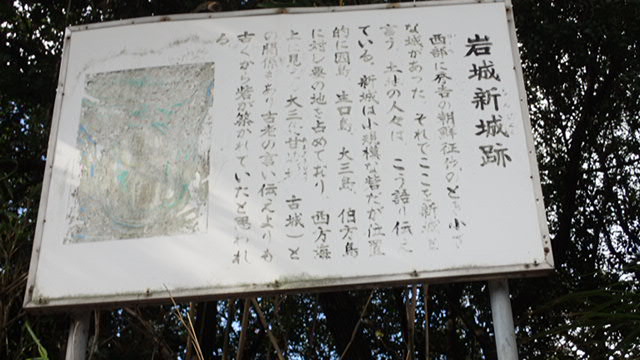 岩城新城跡
西部に秀吉の朝鮮征伐のとき小さ
な城があった それでここを新城と
言う 土地の人々は こう語り伝え
ている。新城は小規模な岩だが位置
的に因島 生口島 大三島 伯方島
に対し要の地を占めており、西方海
上に見る 大三 甘崎 古城 と
の関係もあり古老の言い伝えよりも
古くから砦が築かれていたと思われ
る